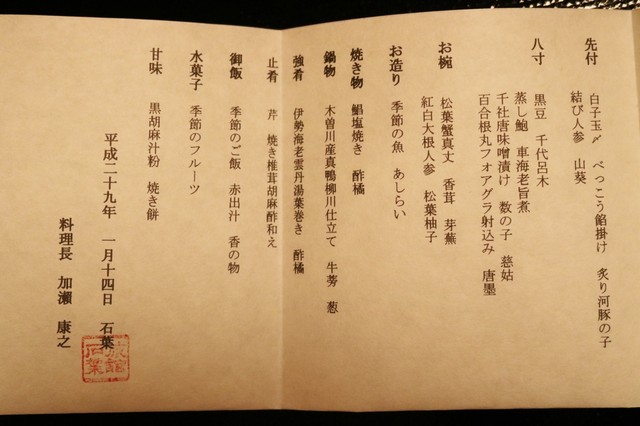 先付　白子玉〆　べっこう餡掛け　炙り河豚の子
結び人参　山葵
八寸　黒豆　千代呂木
蒸し鮑　車海老旨煮
千社唐味噌漬け　数の子　慈姑
百合根丸フォアグラ射込み　唐墨
お椀　松葉蟹真丈　香茸　芽蕪
紅白大根人参　松葉柚子
お造り　季節の魚　あしらい
焼き物　鯧塩焼き　酢橘
鍋物　木曽川産真鴨柳川仕立て　牛蒡　葱
強肴　伊勢海老雲丹湯葉巻き　酢橘
止肴　芹　焼き椎茸胡麻酢和え
御飯　季節のご飯　赤出汁　香の物
水菓子　季節のフルーツ
甘味　黒胡麻汁粉　焼き餅
平成二十九年　一月十四日　石葉
料理長　加瀬　康之
旅館
石葉